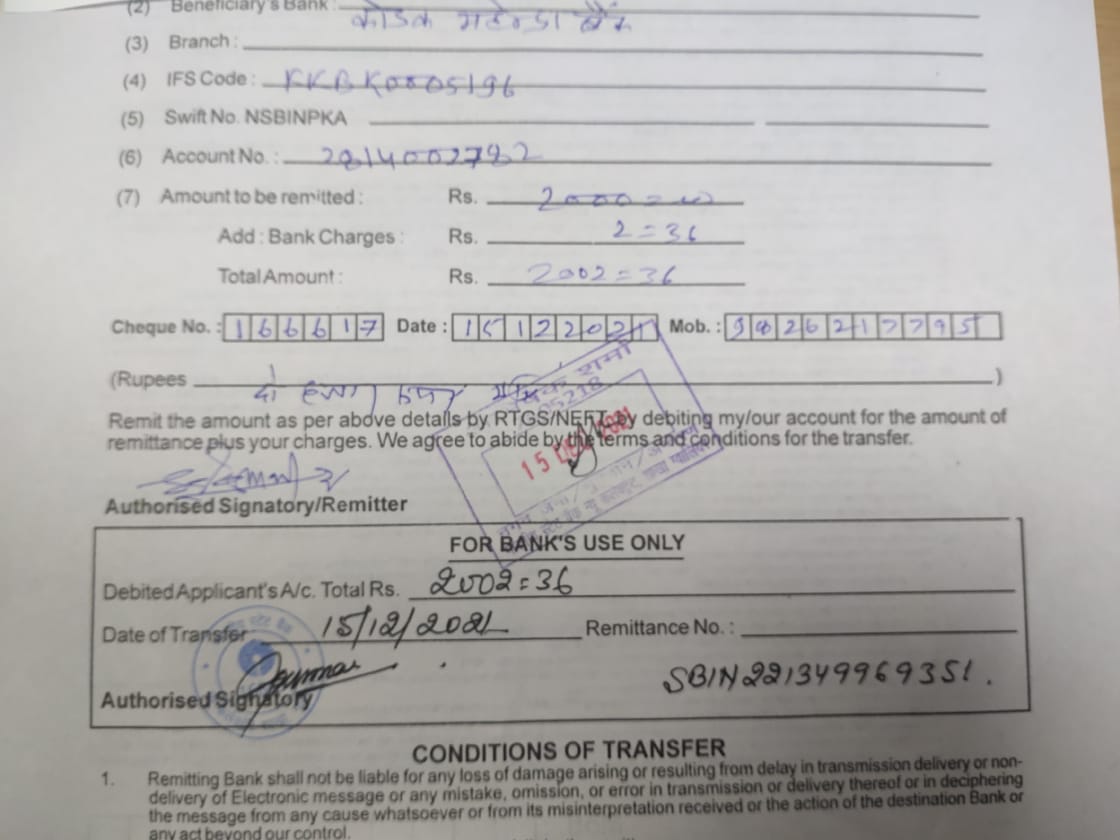 (2) Beneficiary's Bank : कोटक महेन्द्रा बैंक
(3) Branch :
(4) IFS Code : KKBK0005196
(5) Swift No. NSBINPKA
(6) Account No. : 2814002782
(7) Amount to be remitted : Rs. 2000=00
Add : Bank Charges : Rs. 2=36
Total Amount : Rs. 2002=36
Cheque No. : 166617 Date : 15122021 Mob. : 9826217795
(Rupees दो हजार )
शर्मा
5218
15 DEC 2021
Remit the amount as per above details by RTGS/NEFT, by debiting my/our account for the amount of
remittance plus your charges. We agree to abide by the terms and conditions for the transfer.
Authorised Signatory/Remitter
FOR BANK'S USE ONLY
Debited Applicant's A/c. Total Rs. 2002=36
Date of Transfer 15/12/2021 Remittance No. :
Authorised Signatory SBIN221349969351.
CONDITIONS OF TRANSFER
1. Remitting Bank shall not be liable for any loss of damage arising or resulting from delay in transmission delivery or non-
delivery of Electronic message or any mistake, omission, or error in transmission or delivery thereof or in deciphering
the message from any cause whatsoever or from its misinterpretation received or the action of the destination Bank or
any act beyond our control.